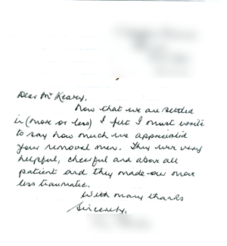 Dear Mr Kearey,
Now that we are settled
in (more or less) I felt I must write
to say how much we appreciated
your removal men. They were very
helpful, cheerful and above all
patient and they made our move
less traumatic.
With many thanks
Sincerely,